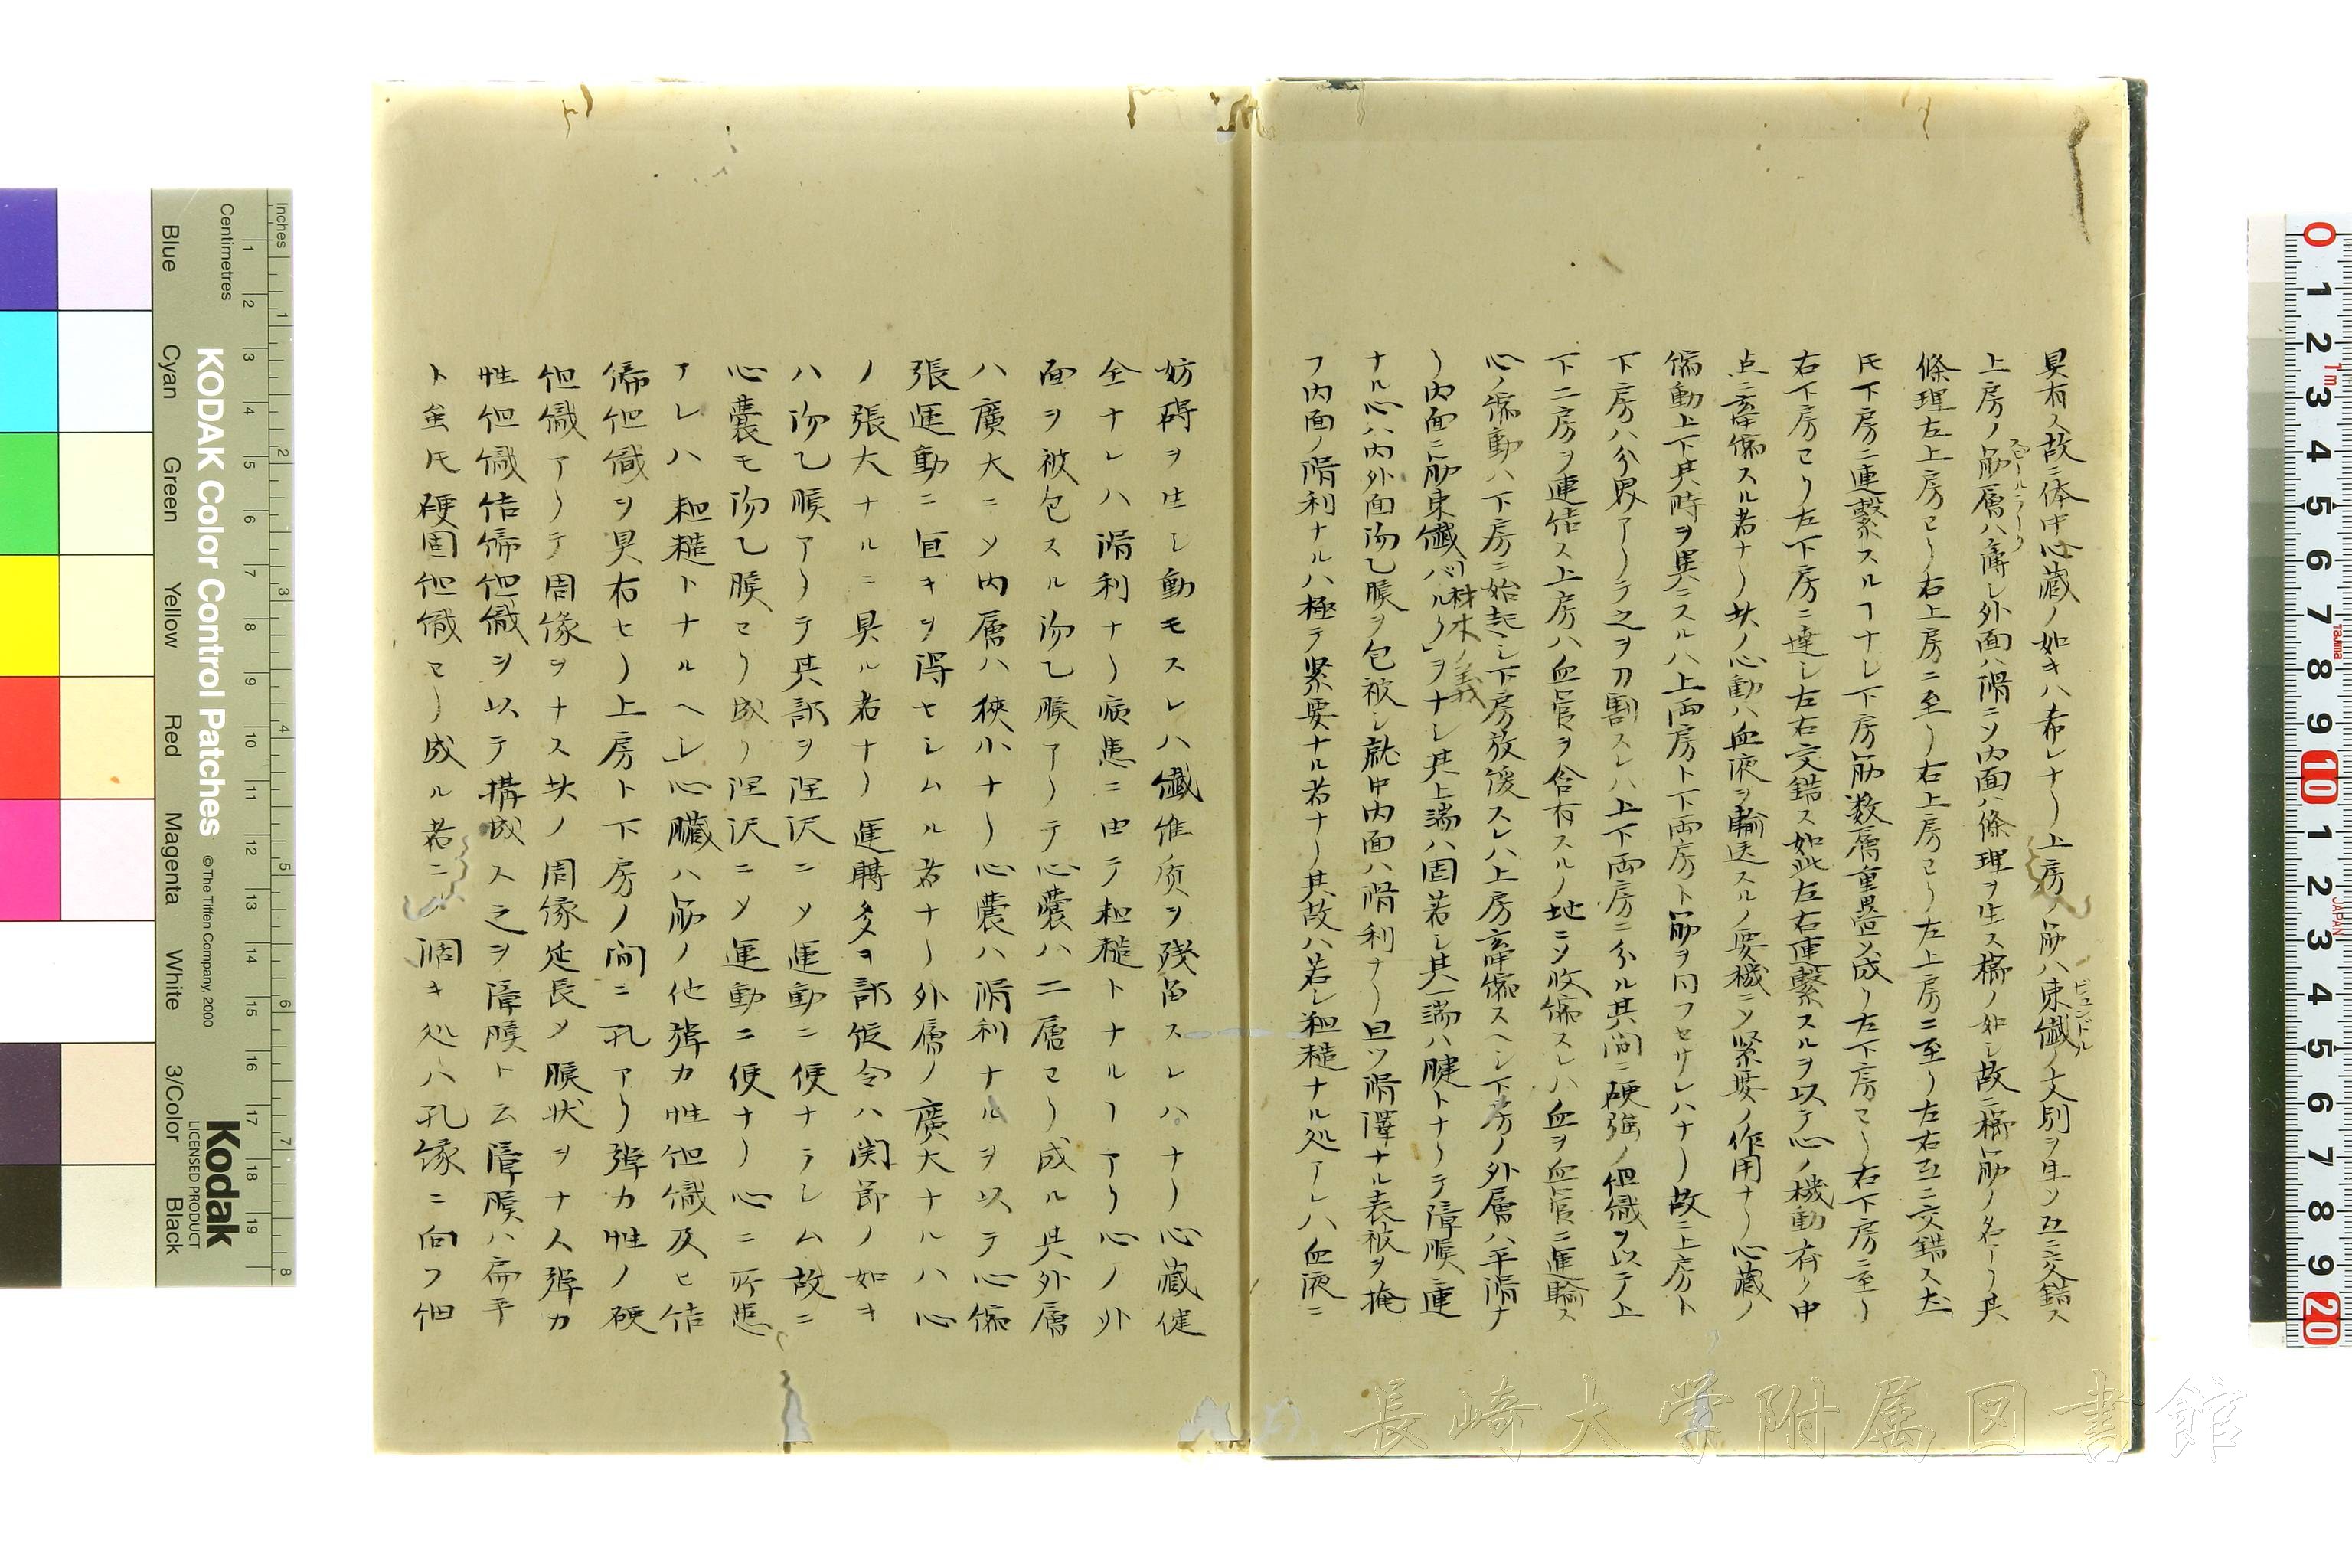 具有ス故ニ体中心藏ノ如キハ希レナリ上房ノ筋ハ束纎ノ支別ヲ生ソ互ニ交錯ス
ビュンドル
上房ノ筋層ハ薄シ外面ハ滑ニソ内面ハ條理ヲ生ス櫛ノ如シ故ニ櫛筋ノ名アリ其
條理左上房ヨリ右上房ニ至リ右上房ヨリ左上房ニ至リ左右互ニ交錯ス
氏下房ニ連繋スルヿナシ下房筋数層重畳ソ成リ左下房ヨリ右下房ニ至リ
右下房ヨリ左下房ニ達シ左右交錯ス如此左右連繋スルヲ以テ心ノ機動有リ中
点ニ牽縮スル者ナリ其ノ心動ハ血液ヲ輸送スルノ要機ニソ緊要ノ作用ナリ心藏ノ
縮動上下其時ヲ異ニスルハ上両房ト下両房ト筋ヲ同フセサレハナリ故ニ上房ト
下房ハ分界アリテ之ヲ刀割スレハ上下両房ニ分ル其間ニ硬強ノ組織ヲ以テ上
下二房ヲ連結ス上房ハ血管ヲ含有スルノ地ニソ收縮スレハ血ヲ血管ニ運輸ス
心ノ縮動ハ下房ニ始起シ下房放緩スレハ上房牽縮スヘシ下房ノ外層ハ平滑ナ
リ内面ニ筋束纎バルリ材木ノ義ヲナシ其上端ハ固着シ其一端ハ腱トナリテ障膜ニ連
ナル心ハ内外面泌乙膜ヲ包被シ就中内面ハ滑利ナリ且ツ滑澤ナル表被ヲ掩
フ内面ノ滑利ナルハ極テ緊要ナル者ナリ其故ハ若シ粗糙ナル処アレハ血液ニ
妨碍ヲ生シ動モスレハ纎維质ヲ残畄スレハナリ心藏健
全ナレハ滑利ナリ病患ニ由テ粗糙トナルヿアリ心ノ外
面ヲ被包スル泌乙膜アリテ心嚢ハ二層ヨリ成ル其外層
ハ廣大ニソ内層ハ狹小ナリ心嚢ハ滑利ナルヲ以テ心縮
張運動ニ宜キヲ得セシムル者ナリ外層ノ廣大ナルハ心
ノ張大ナルニ具ル者ナリ運轉多ヲ部仮令ハ関節ノ如キ
ハ泌乙膜アリテ其部ヲ淫沢ニソ運動ニ便ナラシム故ニ
心嚢モ泌乙膜ヨリ成リ淫沢ニソ運動ニ便ナリ心ニ所患
アレハ粗糙トナルヘシ」心臓ハ筋ノ他弾力性組織及ヒ结
締组織ヲ具有セリ上房ト下房ノ间ニ孔アリ弾力性ノ硬
组織アリテ周缘ヲナス其ノ周缘延長ソ膜状ヲナス弾力
性组織结締组織ヲ以テ構成ス之ヲ障膜ト云障膜ハ扁平
ト虽氏硬固组織ヨリ成ル者ニ〆濶キ処ハ孔缘ニ向フ细